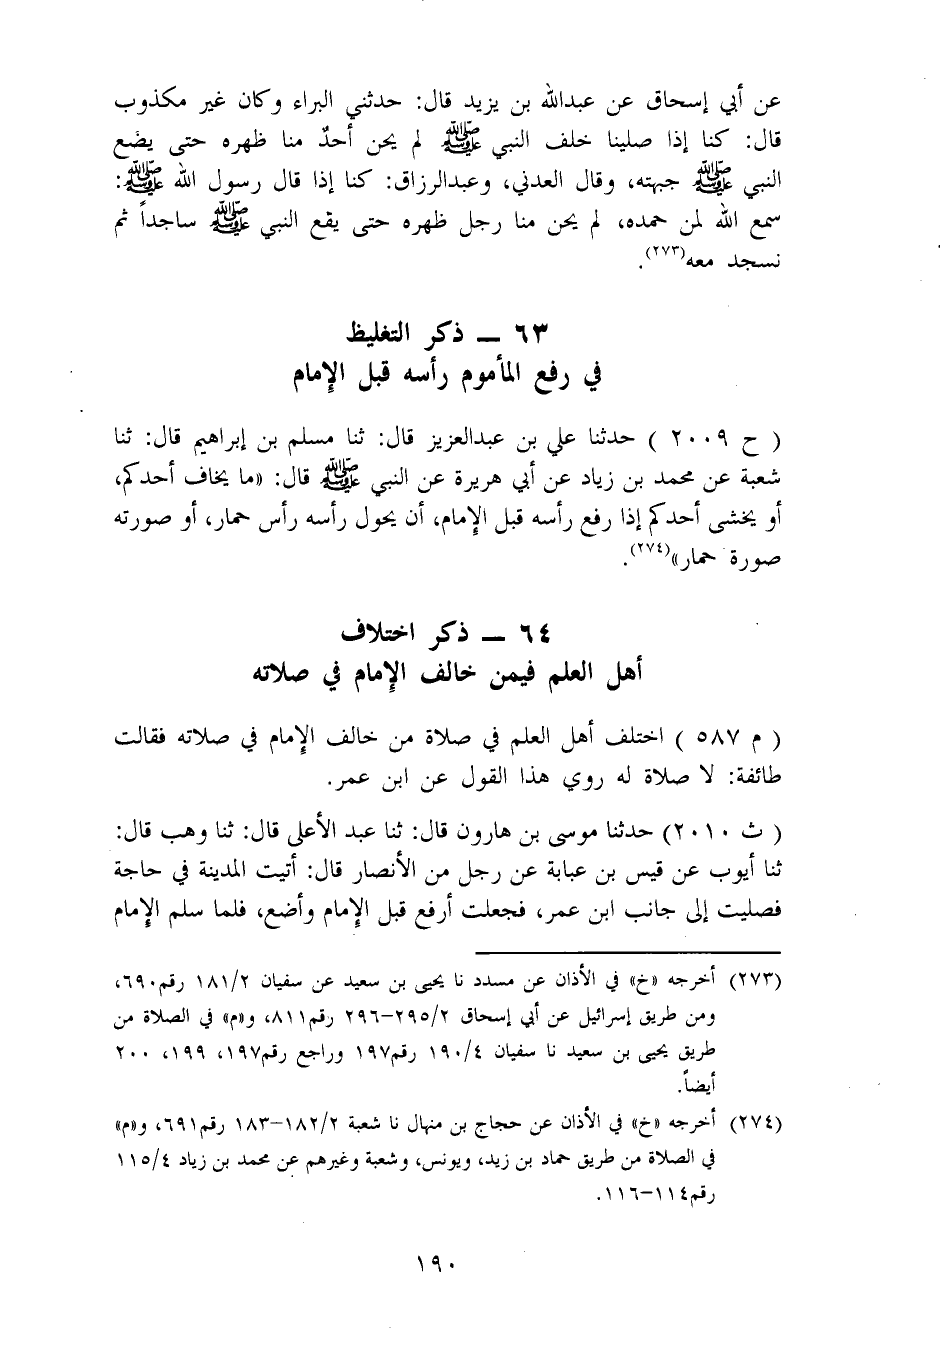 عن أبي إسحاق عن عبدالله بن يزيد قال: حدثني البراء وكان غير مكذوب
قال: كنا إذا صلينا خلف النبي ﷺ لم يحن أحدٌ منا ظهره حتى يضع
النبي ﷺ جبهته، وقال العدني، وعبدالرزاق: كنا إذا قال رسول الله ﷺ:
سمع الله لمن حمده، لم يحن منا رجل ظهره حتى يقع النبي ﷺ ساجداً ثم
نسجد معه(٢٧٣).
٦٣ ــ ذكر التغليظ
في رفع المأموم رأسه قبل الإمام
( ح ٢٠٠٩ ) حدثنا علي بن عبدالعزيز قال: ثنا مسلم بن إبراهيم قال: ثنا
شعبة عن محمد بن زياد عن أبي هريرة عن النبي ﷺ قال: «ما يخاف أحدكم،
أو يخشى أحدكم إذا رفع رأسه قبل الإمام، أن يحول رأسه رأس حمار، أو صورته
صورة حمار»(٢٧٤).
٦٤ ــ ذكر اختلاف
أهل العلم فيمن خالف الإمام في صلاته
( م ٥٨٧ ) اختلف أهل العلم في صلاة من خالف الإمام في صلاته فقالت
طائفة: لا صلاة له روي هذا القول عن ابن عمر.
( ث ٢٠١٠) حدثنا موسى بن هارون قال: ثنا عبد الأعلى قال: ثنا وهب قال:
ثنا أيوب عن قيس بن عبابة عن رجل من الأنصار قال: أتيت المدينة في حاجة
فصليت إلى جانب ابن عمر، فجعلت أرفع قبل الإمام وأضع، فلما سلم الإمام
(٢٧٣) أخرجه «خ» في الأذان عن مسدد نا يحيى بن سعيد عن سفيان ١٨١/٢ رقم٦٩٠،
ومن طريق إسرائيل عن أبي إسحاق ٢٩٥/٢–٢٩٦ رقم٨١١، و«م» في الصلاة من
طريق يحيى بن سعيد نا سفيان ١٩٠/٤ رقم١٩٧ وراجع رقم١٩٧، ١٩٩، ٢٠٠
أيضاً.
(٢٧٤) أخرجه «خ» في الأذان عن حجاج بن منهال نا شعبة ١٨٢/٢–١٨٣ رقم٦٩١، و«م»
في الصلاة من طريق حماد بن زيد، ويونس، وشعبة وغيرهم عن محمد بن زياد ١١٥/٤
رقم١١٤–١١٦.
١٩٠